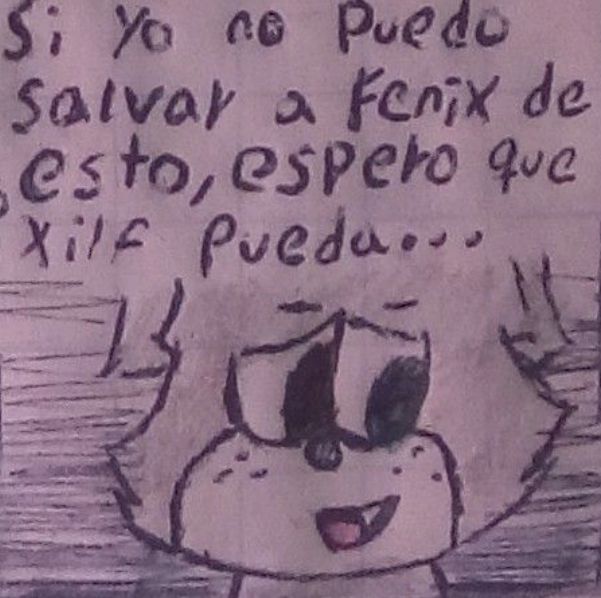 Si yo no Puedo
Salvar a Fenix de
esto, espero que
Xilf Pueda...